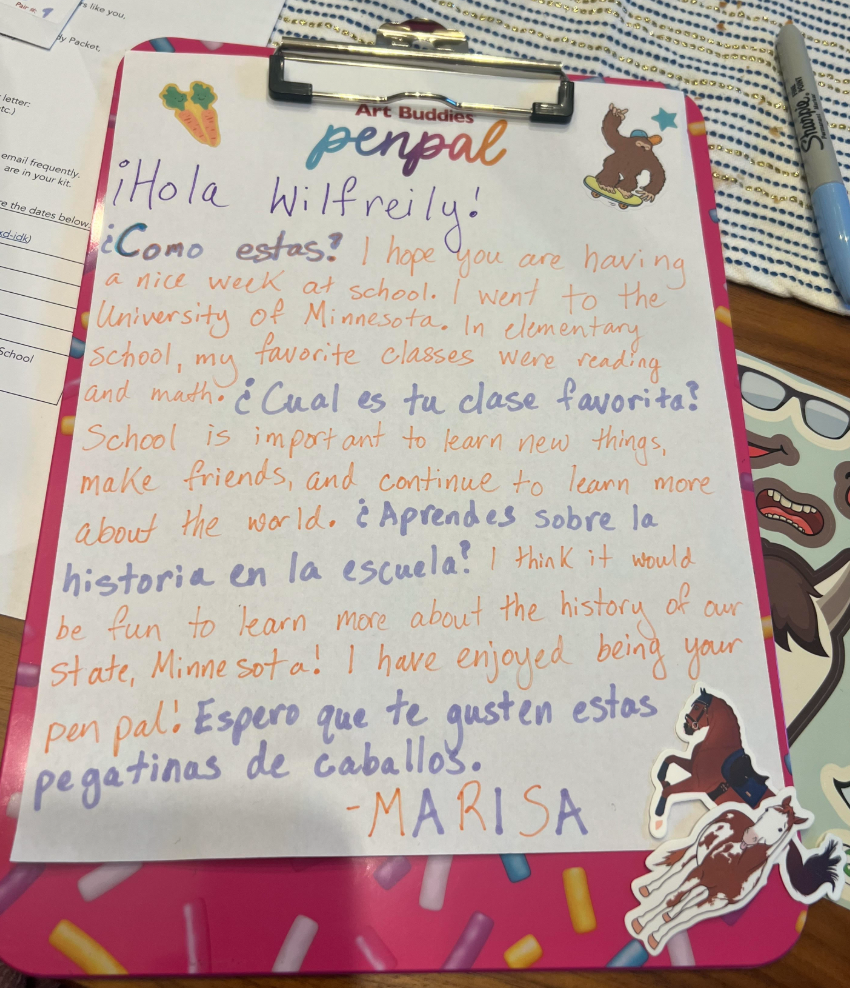 Pair #: 9
s like you,
dy Packet,
letter:
etc.)
email frequently.
are in your kit.
re the dates below.
sd-idk)
School
Sharpie
Art Buddies
penpal
¡Hola Wilfreily!
¿Como estas? I hope you are having
a nice week at school. I went to the
University of Minnesota. In elementary
school, my favorite classes were reading
and math. ¿Cual es tu clase favorita?
School is important to learn new things,
make friends, and continue to learn more
about the world. ¿Aprendes sobre la
historia en la escuela? I think it would
be fun to learn more about the history of our
state, Minnesota! I have enjoyed being your
pen pal! Espero que te gusten estas
pegatinas de caballos.
-MARISA